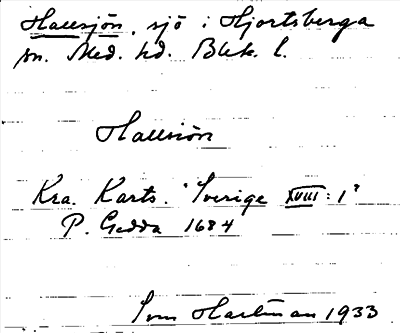 Hallsjön, sjö i Hjortsberga
sn. Med. hd. Blek. l.
Hallsiön
Kra. Karts. "Sverige XVIII:1"
P. Gedda 1684
Sven Hartman 1933